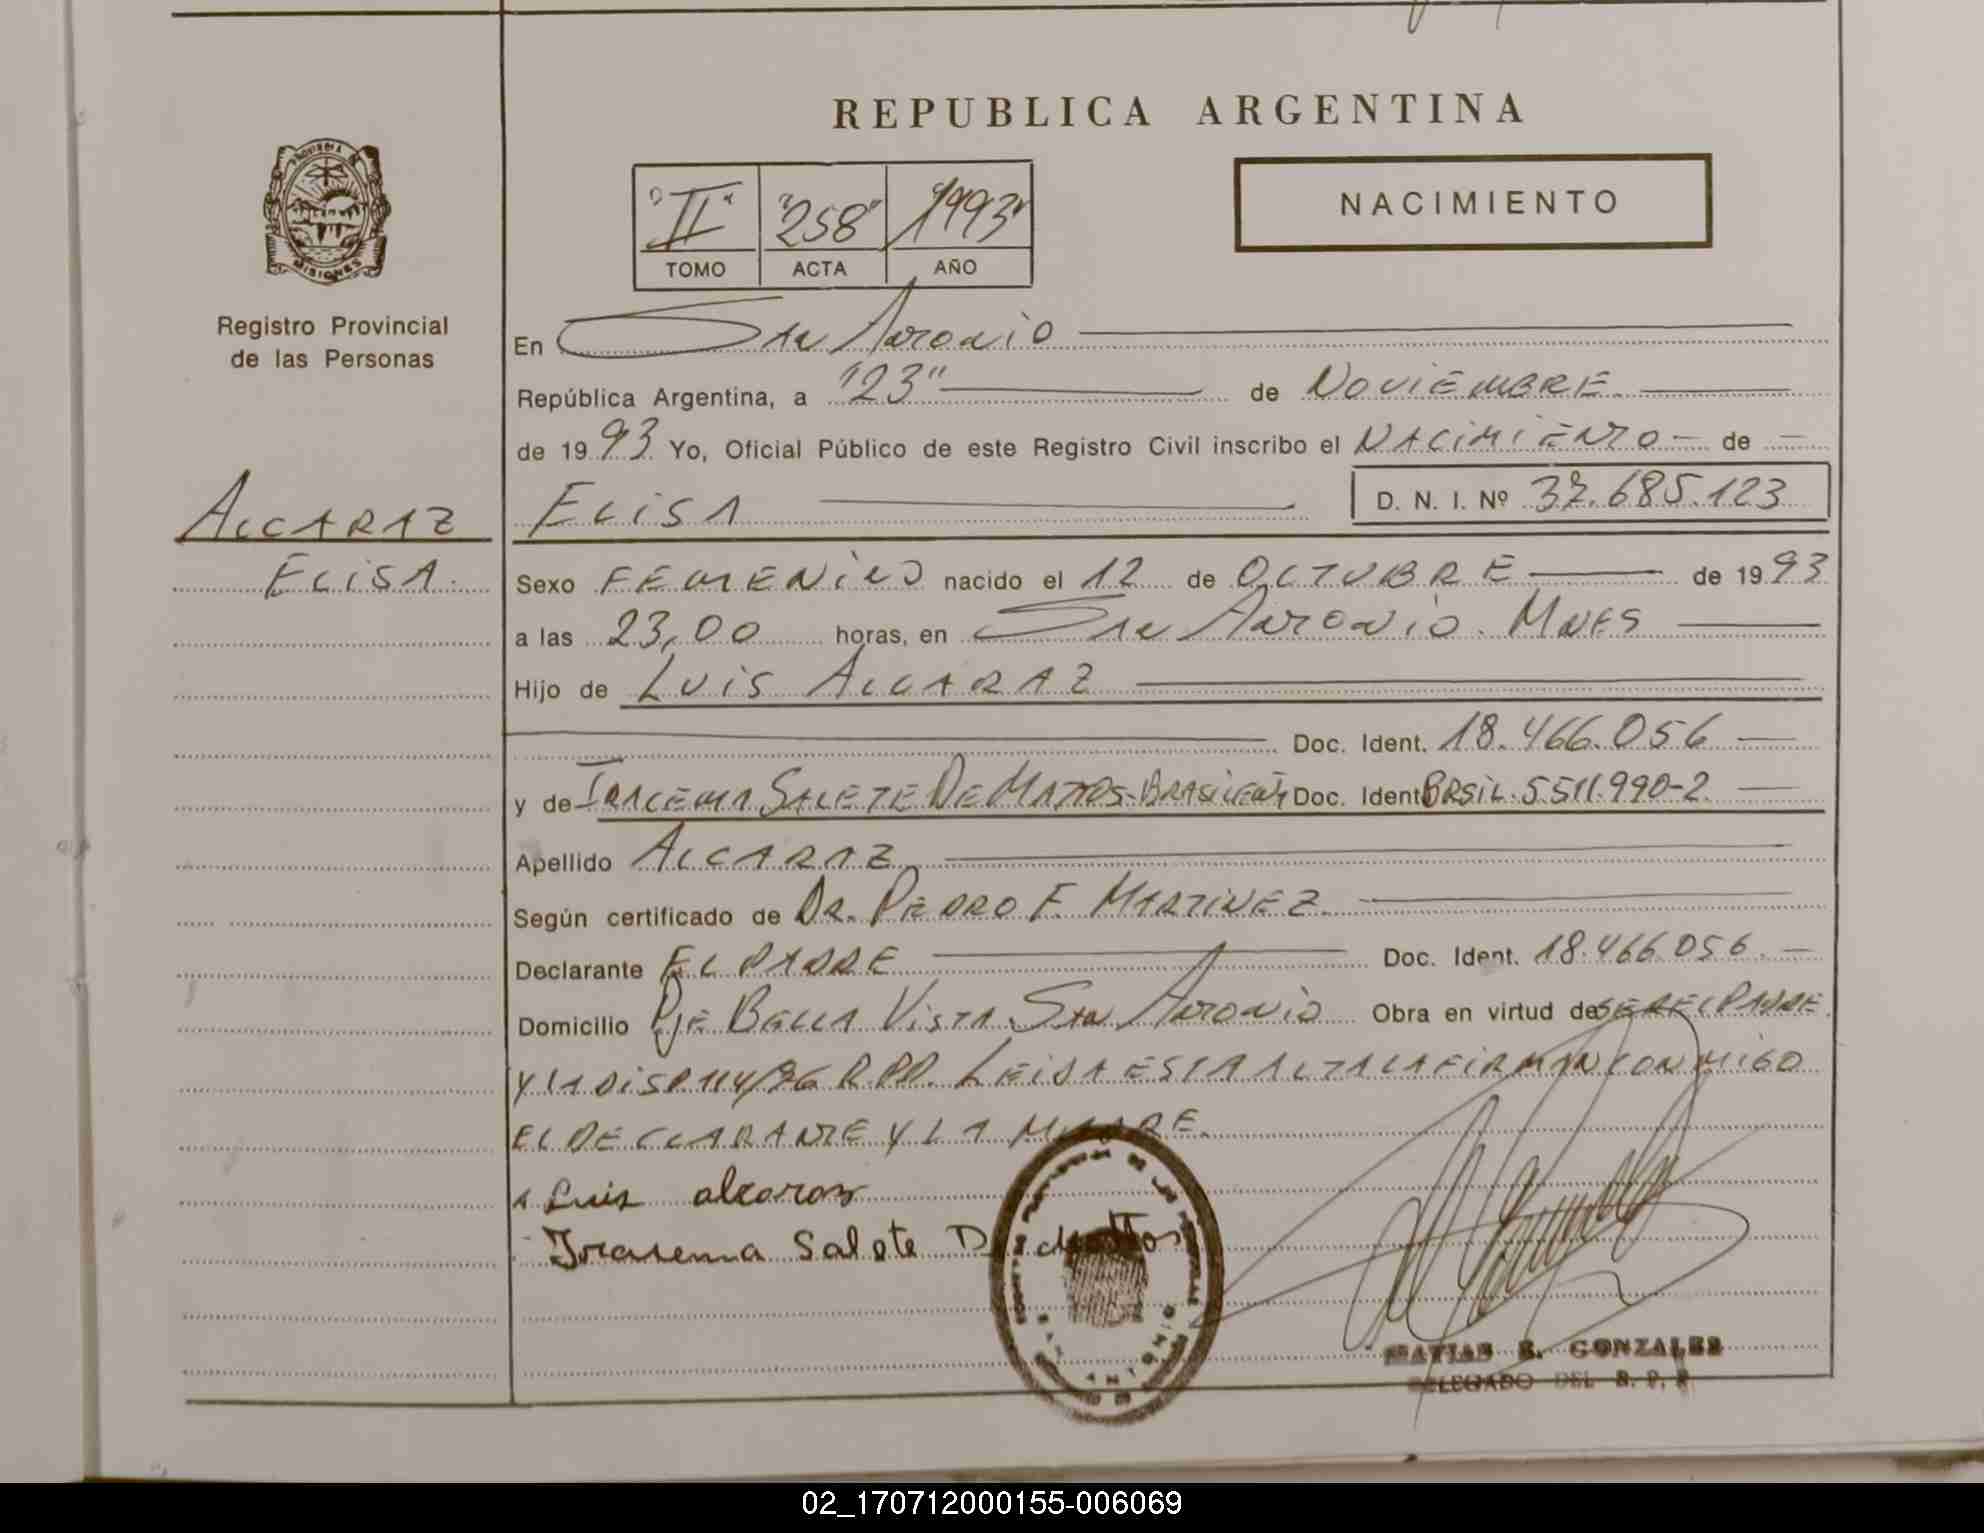 REPUBLICA ARGENTINA
PROVINCIA DE
MISIONES
Registro Provincial
de las Personas
"II" "258" "1993"
TOMO ACTA AÑO
NACIMIENTO
En San Antonio
República Argentina, a "23" de NOVIEMBRE
de 1993 Yo, Oficial Público de este Registro Civil inscribo el NACIMIENTO - de -
ALCARAZ
ELISA D. N. I. Nº 37.685.123
ELISA.
Sexo FEMENINO nacido el 12 de OCTUBRE de 1993
a las 23,00 horas, en San Antonio. MNES
Hijo de LUIS ALCARAZ
Doc. Ident. 18.466.056
y de IRACEMA SALETE DE MATTOS-BRASILEÑA Doc. Ident BRSIL. 5.511.990-2
Apellido ALCARAZ
Según certificado de DR. PEDRO F. MARTINEZ.
Declarante EL PADRE Doc. Ident. 18.466.056.-
Domicilio Pje BELLA VISTA. San Antonio Obra en virtud de SER EL PADRE
Y LA DISP 114/86 R.P.P. LEIDA ESTA ACTA LA FIRMAN CONMIGO
EL DECLARANTE Y LA MADRE.
Luis alcaraz
Iracema Salete D mattos
MATIAS E. GONZALES
DELEGADO DEL R. P. P
02_170712000155-006069